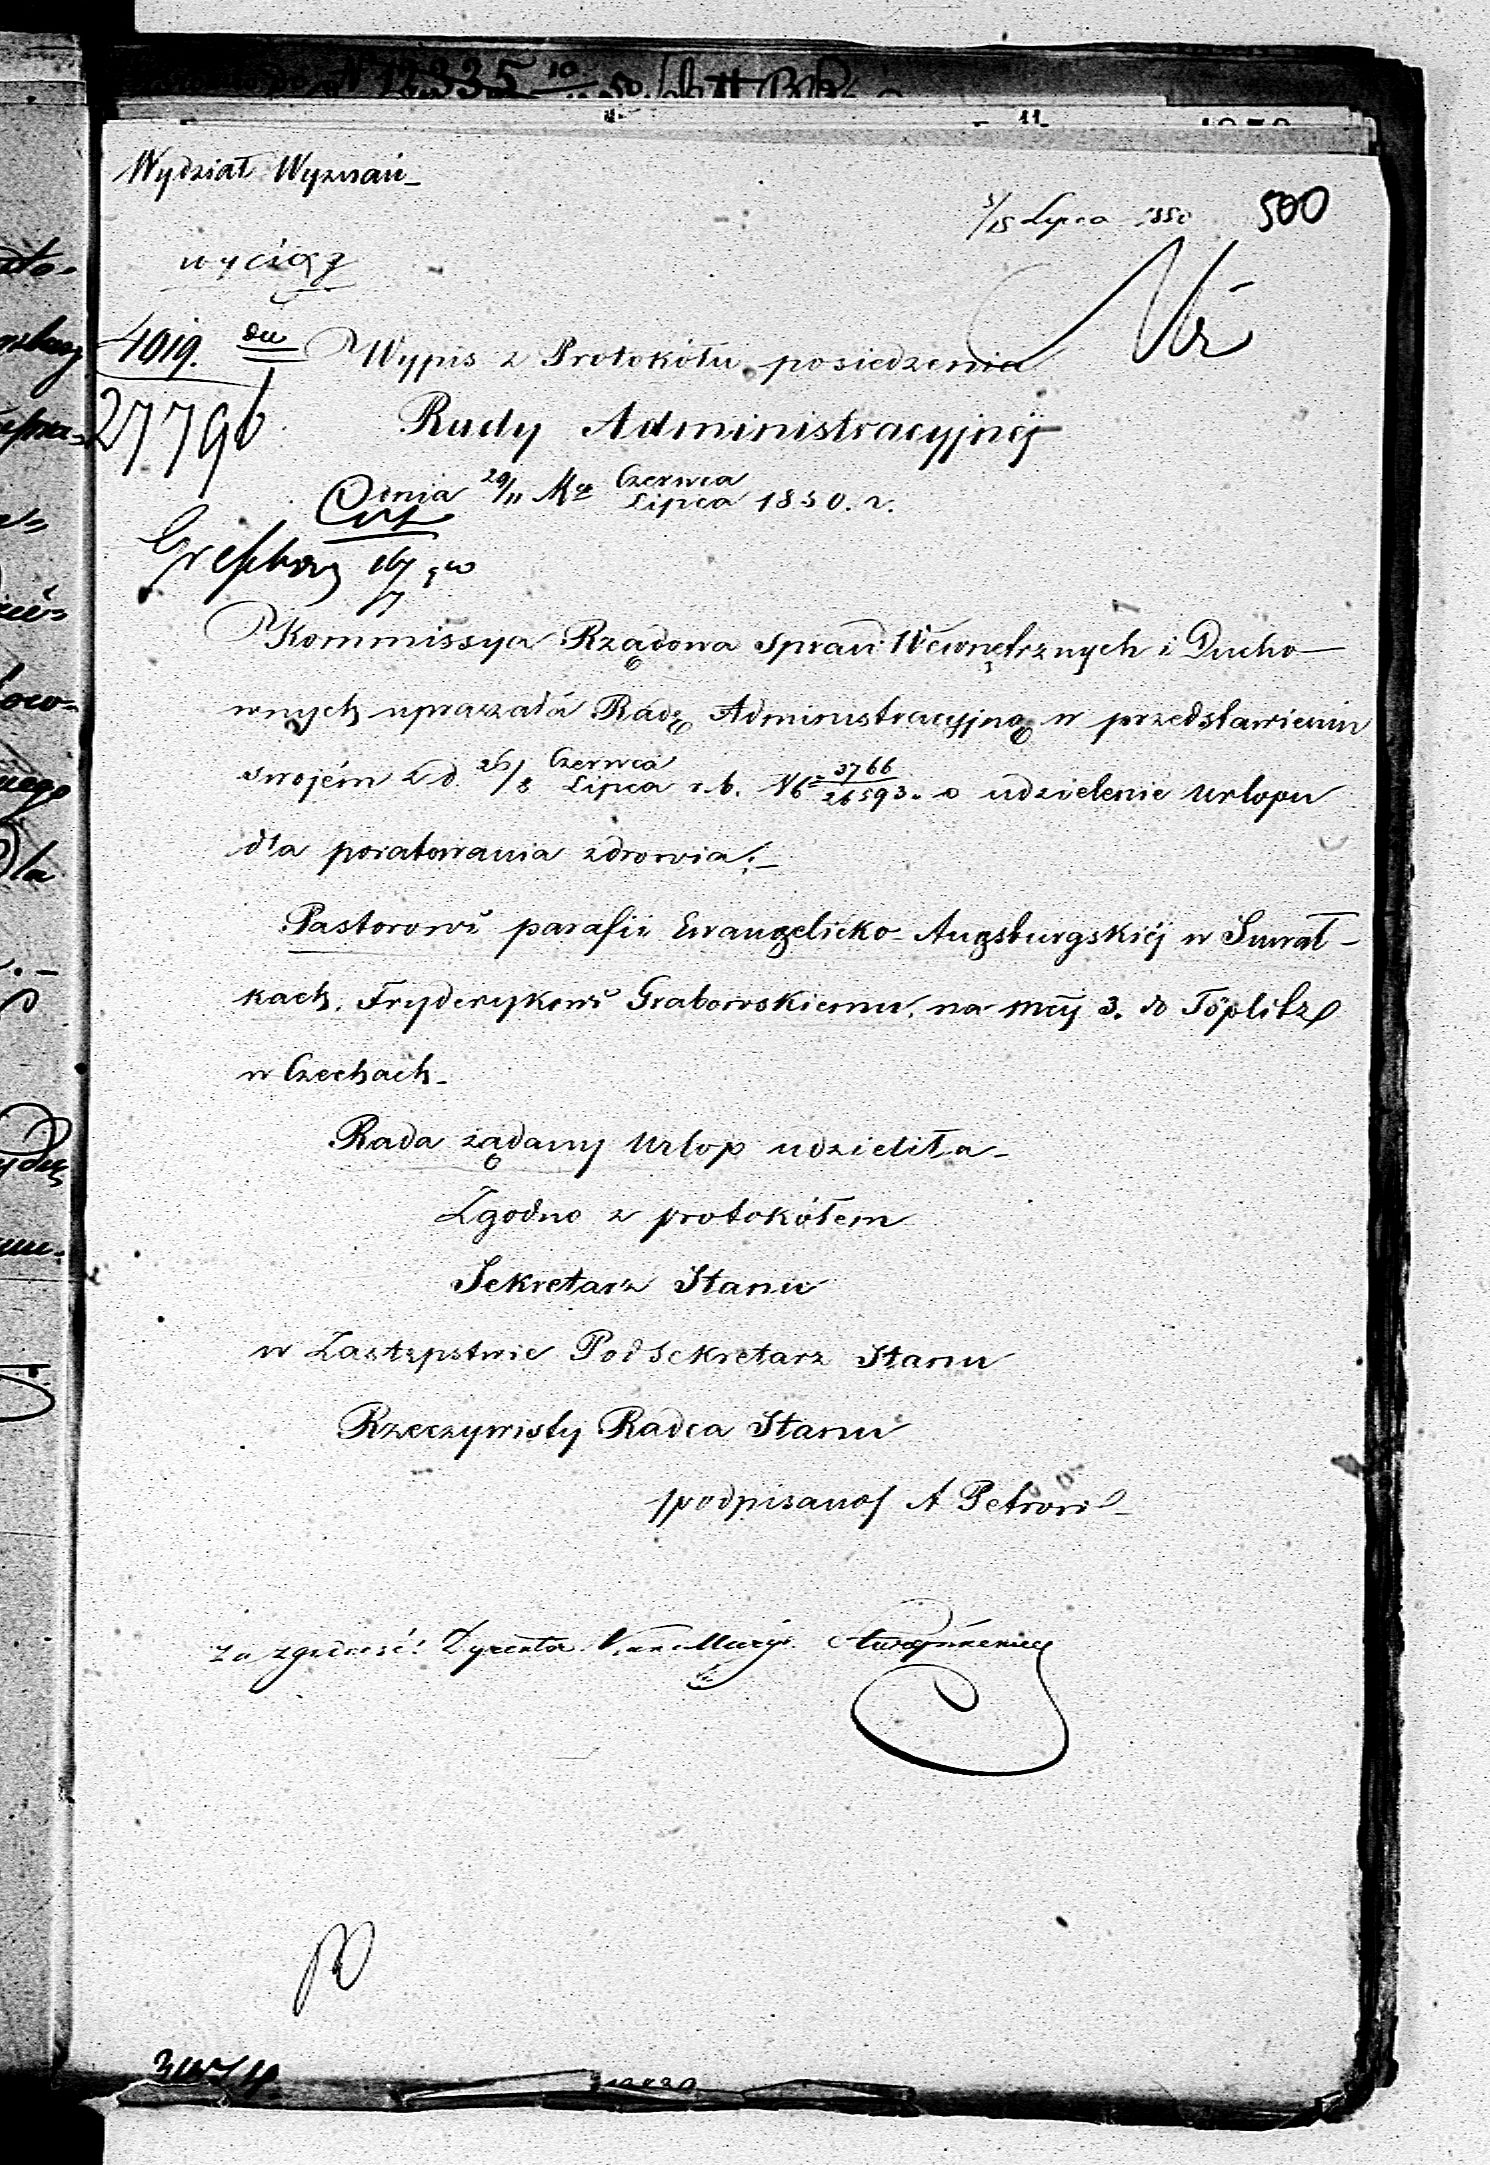 Wydział Wyznań
3/15 Lipca 1850
500
wyciąg
4019.
27796
Wypis z Protokółu posiedzenia
Rady Administracyjnéj
dnia 29/11 Czerwca/Lipca 1850. r.
Kommissya Rządowa Spraw Wewnętrznych i Ducho-
wnych upraszała Radę Administracyjną w przedstawieniu
swojém z d. 26/8 Czerwca/Lipca r. b. No 3766/26593. o udzielenie urlopu
dla poratowania zdrowia:
Pastorowi parafii Ewangelicko-Augsburgskiéj w Suwał-
kach, Fryderykowi Grabowskiemu, na mcy 3. do Töplitz
w Czechach.
Rada żądany urlop udzieliła
Zgodno z protokółem
Sekretarz Stanu
w Zastępstwie Podsekretarz Stanu
Rzeczywisty Radca Stanu
/podpisano/ A Petrow
Za zgodność: Dyrektor Kancellaryi